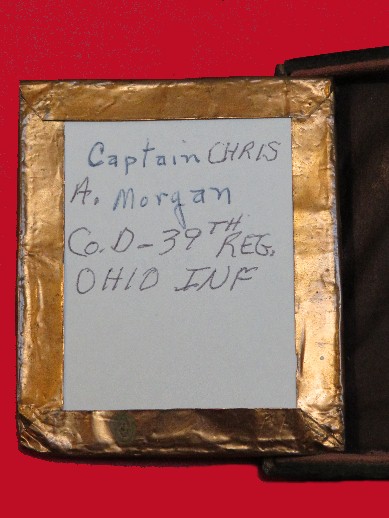 Captain CHRIS
A. Morgan
Co. D - 39TH REG.
OHIO INF